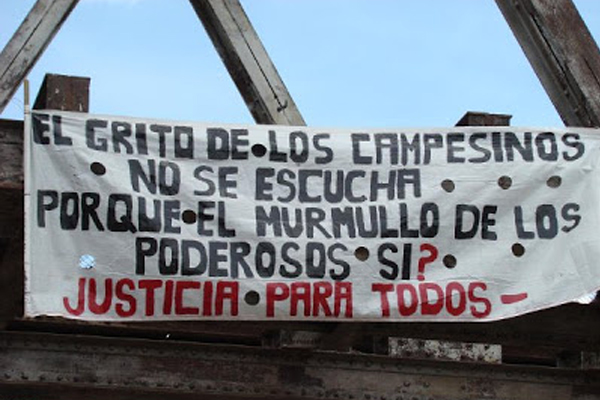 EL GRITO DE LOS CAMPESINOS
NO SE ESCUCHA
PORQUE EL MURMULLO DE LOS
PODEROSOS SI?
JUSTICIA PARA TODOS -